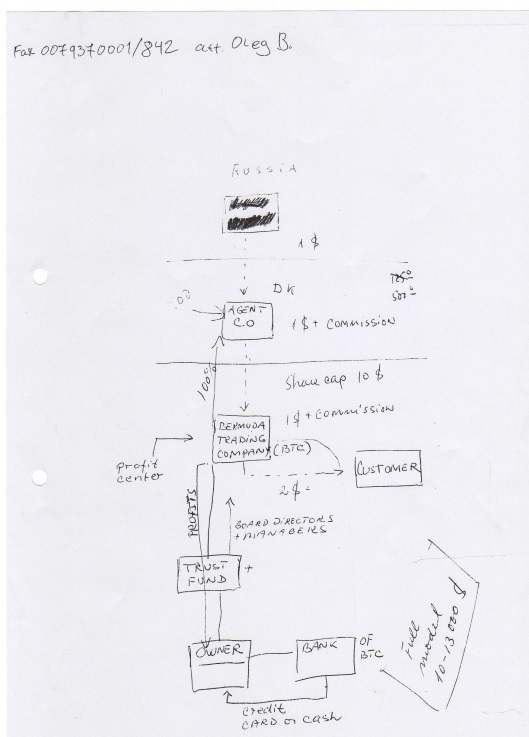 Fax 0079370001/842 att. Oleg B.
RUSSIA
1 $
DK
500
AGENT
C.O
1 $ + COMMISSION
100%
Share cap 10 $
1 $ + COMMISSION
BERMUDA
TRADING
COMPANY
(BTC)
profit
center
CUSTOMER
2 $
PROFITS
BOARD DIRECTORS
+ MANAGERS
TRUST
FUND
+
OWNER
BANK
OF
BTC
credit
CARD or cash
Full
model
10-13000 $